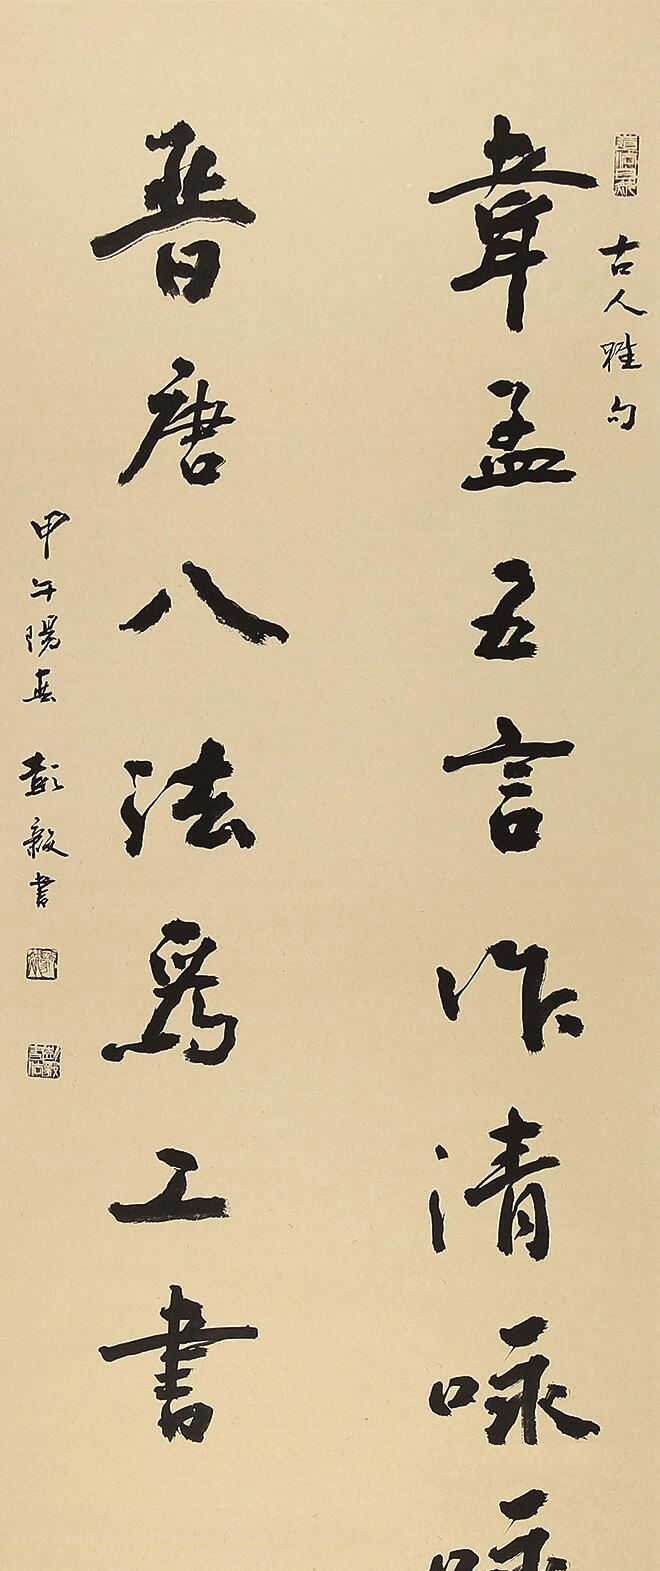 古人雅句
韋孟五言作清咏
晉唐八法爲工書
甲午陽春 彭毅書